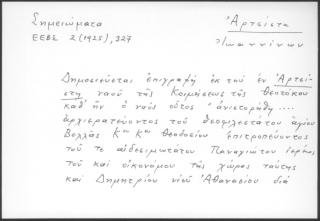 Σημειώματα
Ἀρτσίστα
ΕΕΒΣ 2 (1925), 327
Ἰωαννίνων
Δημοσιεύεται ἐπιγραφὴ ἐκ τοῦ ἐν Ἀρτσί-
στῃ ναοῦ τῆς Κοιμήσεως τῆς Θεοτόκου
καθ' ἣν ὁ ναὸς οὗτος "ἀνιστορήθη ....
ἀρχιερατεύοντος τοῦ θεοφιλεστάτου ἁγίου
Βελλᾶς Κου Κου Θεοδοσίου ἐπιτροπεύοντος
τοῦ τε αἰδεσιμωτάτου Παναγιώτου ἱερέως
τοῦ καὶ οἰκονόμου τῆς χώρας ταύτης
καὶ Δημητρίου υἱοῦ Ἀθανασίου διὰ